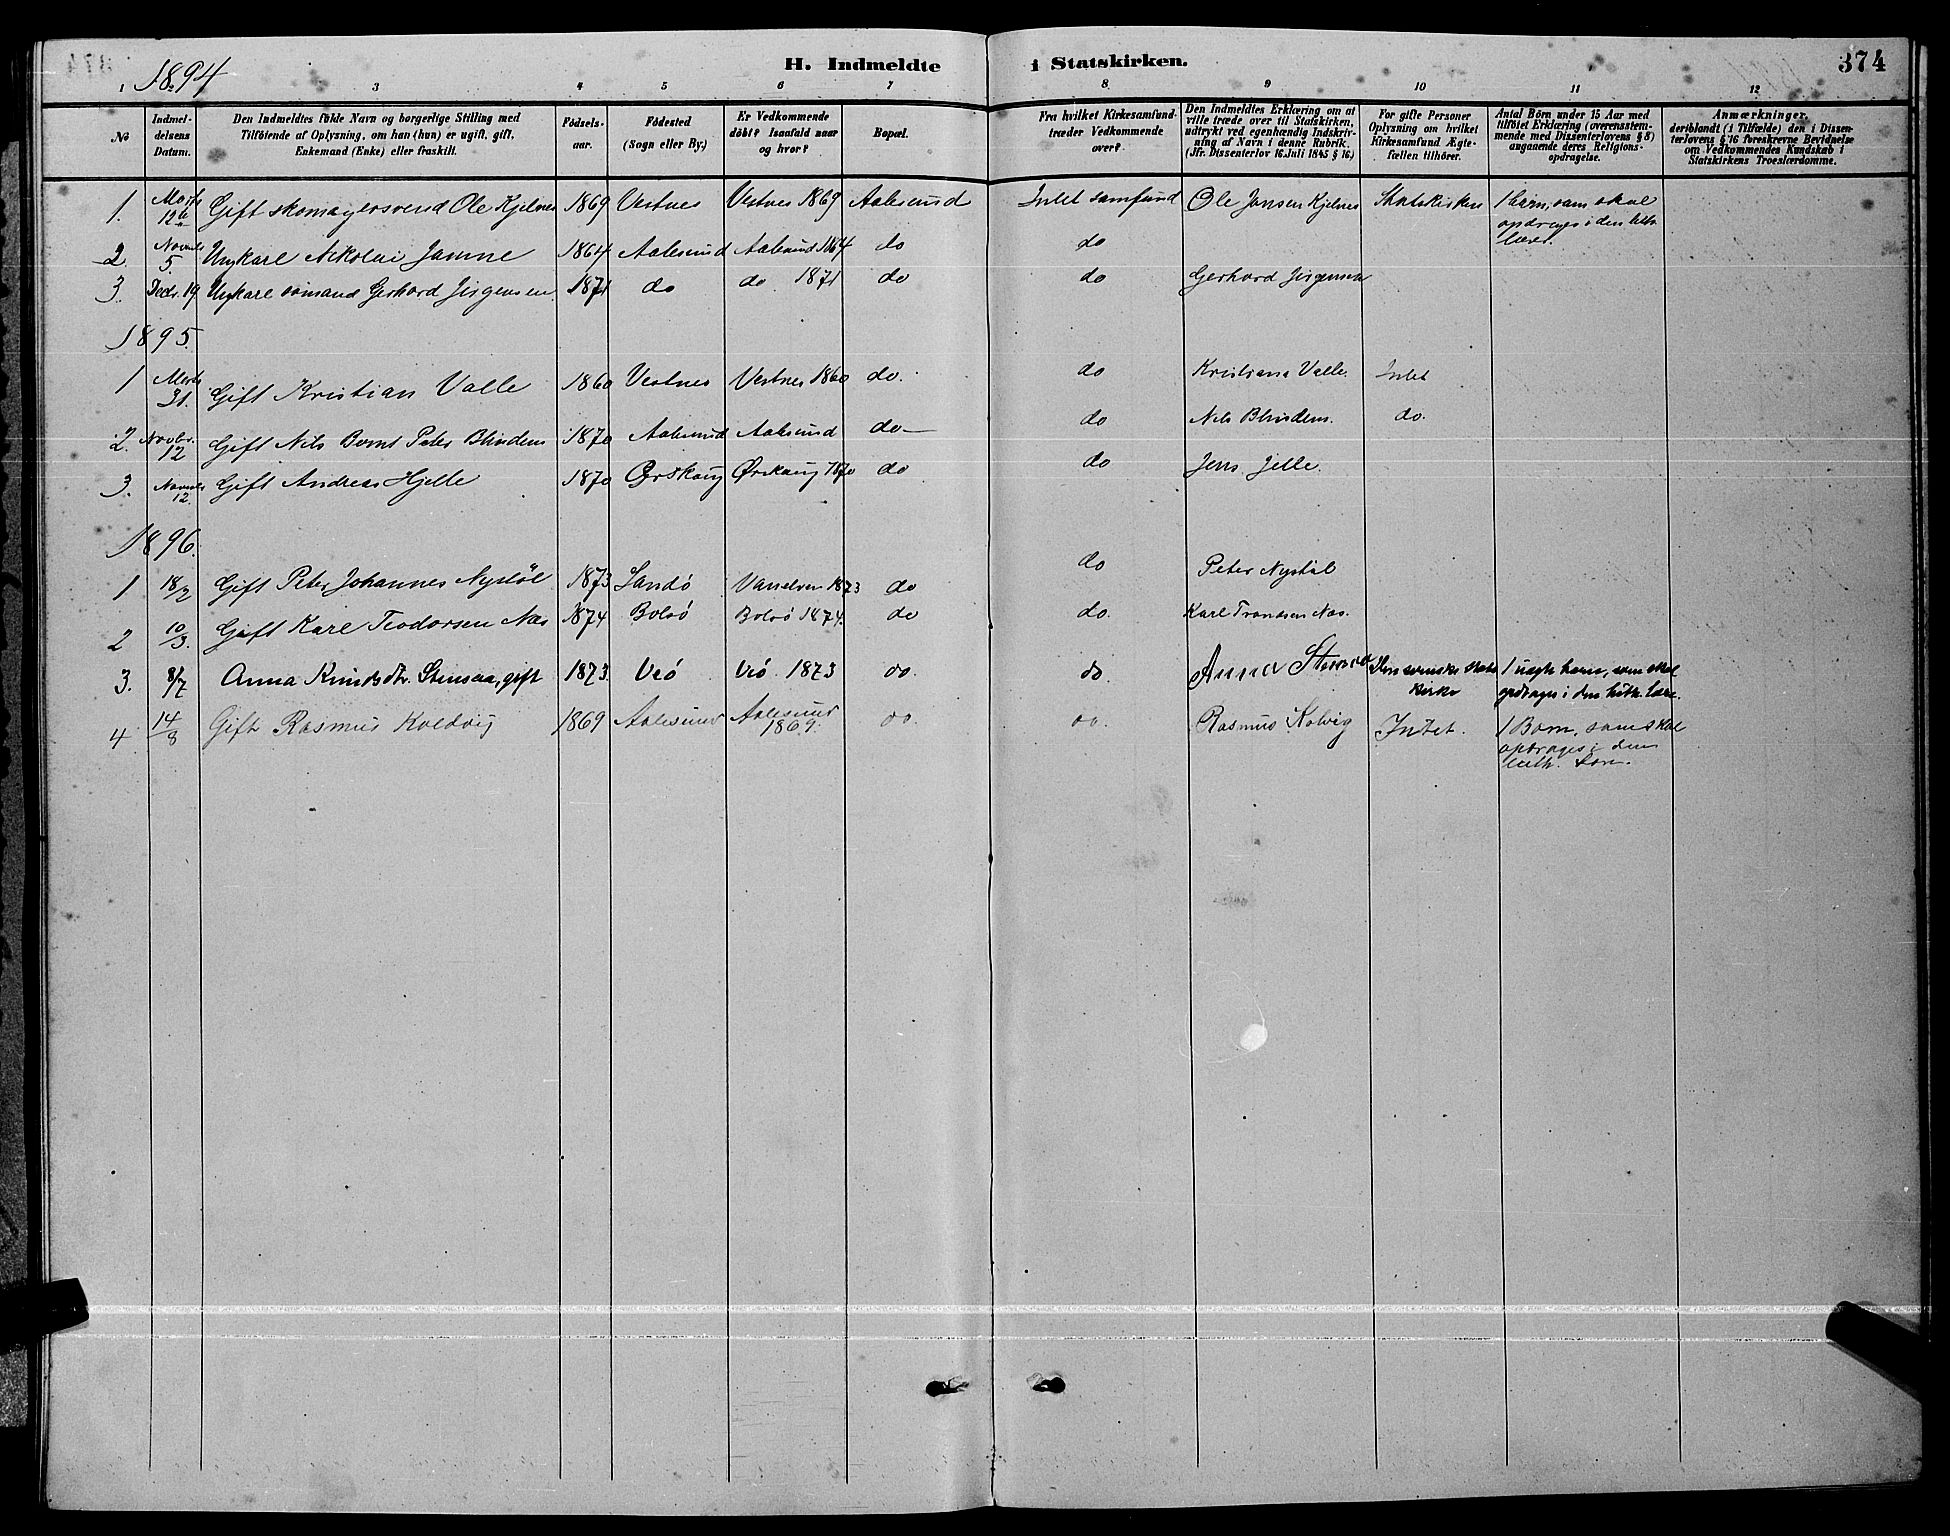 374
1894
H. Indmeldte i Statskirken.
1 2 3 4 5 6 7 8 9 10 11 12
No
Indmel-
delsens
Datum.
Den Indmeldtes fulde Navn og borgerlige Stilling med
Tilföiende af Oplysning, om han (hun) er ugift, gift,
Enkemand (Enke) eller fraskilt.
Födsels-
aar.
Födested
(Sogn eller By.)
Er Vedkommende
döbt? Isaafald naar
og hvor?
Bopæl.
Fra hvilket Kirkesamfund
træder Vedkommende
over?
Den Indmeldtes Erklæring om at
ville træde over til Statskirken,
udtrykt ved egenhændig Indskriv-
ning af Navn i denne Rubrik.
(Jfr. Dissenterlov 16. Juli 1845 § 16.)
For gifte Personer
Oplysning om hvilket
Kirkesamfund Ægte-
fællen tilhörer.
Antal Börn under 15 Aar med
tilföiet Erklæring (overensstem-
mende med Dissenterlovens § 8)
angaaende deres Religions-
opdragelse.
Anmærkninger,
deriblandt (i Tilfælde) den i Dissen-
terlovens § 16 foreskrevne Bevidnelse
om Vedkommendes Kundskab i
Statskirkens Troeslærdomme.
1. Marts 12 Gift skomagersvend Ole Kjelnes 1869 Vestnes Vestnes 1869 Aalesund Intet samfund Ole Jansen Kjelnes Statskirken 1 børn, som skal
opdrages i den luth.
lære.
2. Novmb 5. Ungkarl Nikolai Jamne 1864 Aalesund Aalesund 1864 do do
3. Decbr. 19 Ungkarl sømand Gerhard Jørgensen 1871 do do. 1871 do do Gerhard Jørgensen
1895.
1 Marts 31. Gift Kristian Valle 1860 Vestnes Vestnes 1860 do. do Kristian Valle Intet
2. Novbr. 12 Gift Nils Bernt Peter Blindem 1870 Aalesund Aalesund do do Nils Blindem. do.
3. Novmb 12. Gift Andreas Hjelle 1870 Ørskoug Ørskoug 1870 do do Jens Jelle.
1896.
1 18/2 Gift Peter Johannes Nystøl 1873 Sandö Vanelven 1873 do do Peter Nystøl
2 10/3. Gift Karl Teodorsen Næs 1874 Bolsö Bolsö 1874. do do. Karl Næs.
3. 8/7 Anna Knudsdtr. Stensaa, gift 1873. Veö Veö 1873 do do. Anna Den svenske stats
kirke 1 uægte barn, som skal
opdrages i den luth. Lære.
4. 14/8 Gift Rasmus Koldvig 1869 Aalesund Aalesund
1869. do. do. Rasmus Kolvig Intet. 1 Barn, som skal
opdrages i den
luth. Lære.